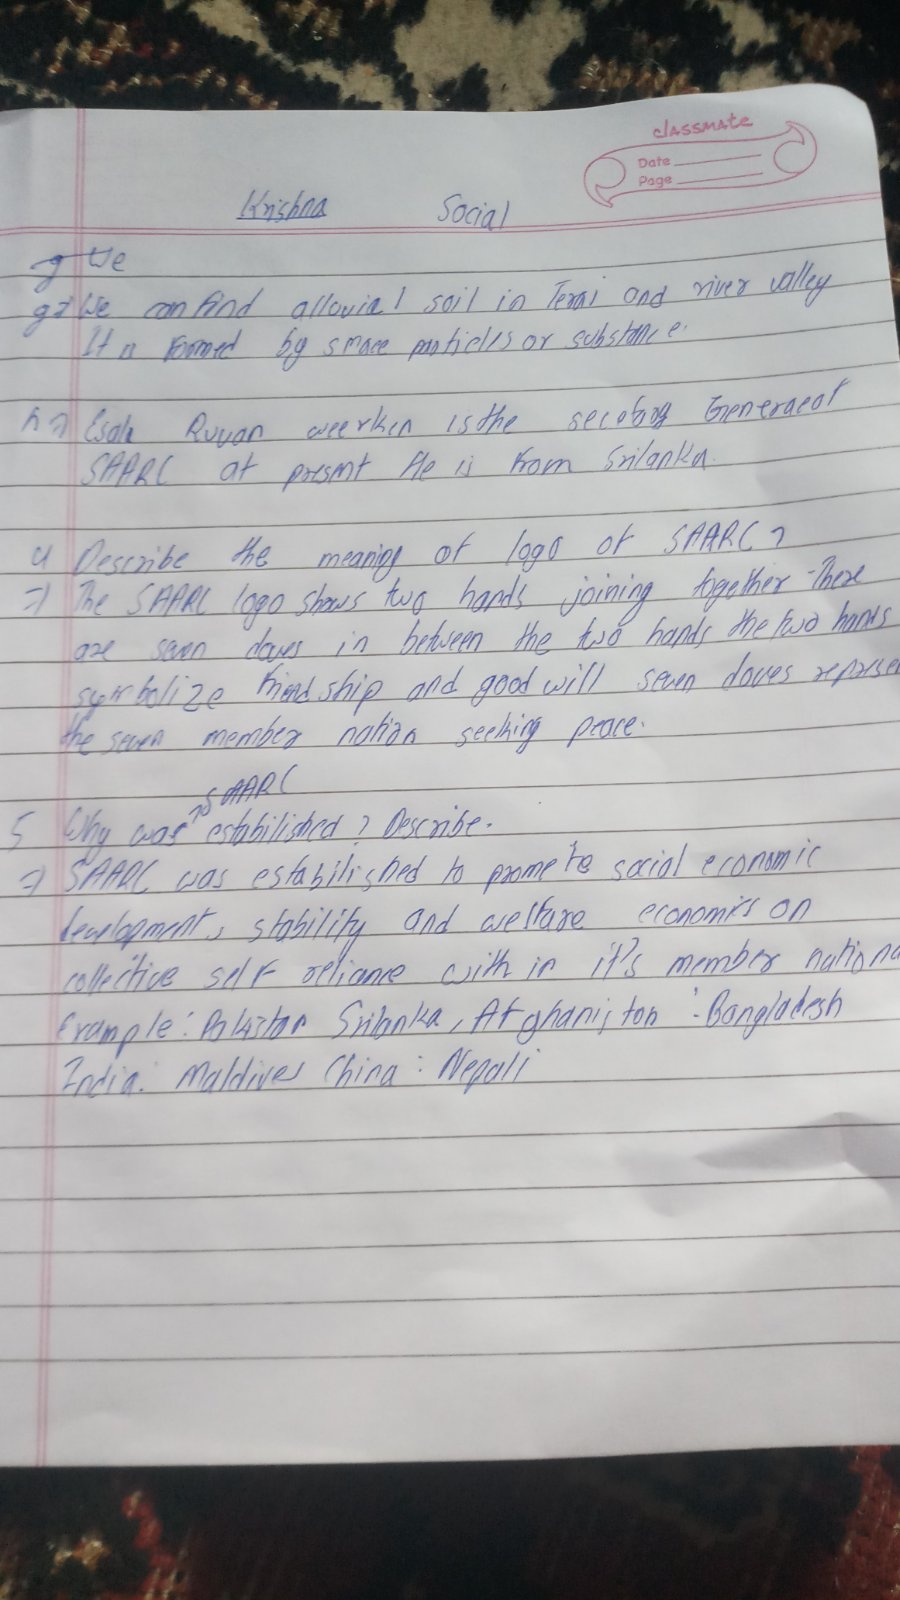 classmate
Date
Page
Krishna Social
g We
g⇒ We can find alluvial soil in Terai and river valley
It is formed by smace particles or substance.
h⇒ Esala Ruwan weerken is the General of
SAARC at presnt He is from Srilanka.
4 Describe the meaning of logo of SAARC?
⇒ The SAARC logo shows two hands joining together There
are seven doves in between the two hands the two hands
symbolize friendship and good will seven doves represe
the seven member nation seeking peace.
SAARC
5 Why was estabilished? Describe.
⇒ SAARC was estabilished to promote social economic
development, stability and welfare economics on
collective self reliance with in it's member nationa
Example: Pakistan Srilanka, Afghaniston Bangladesh
India. Maldives China: Nepali